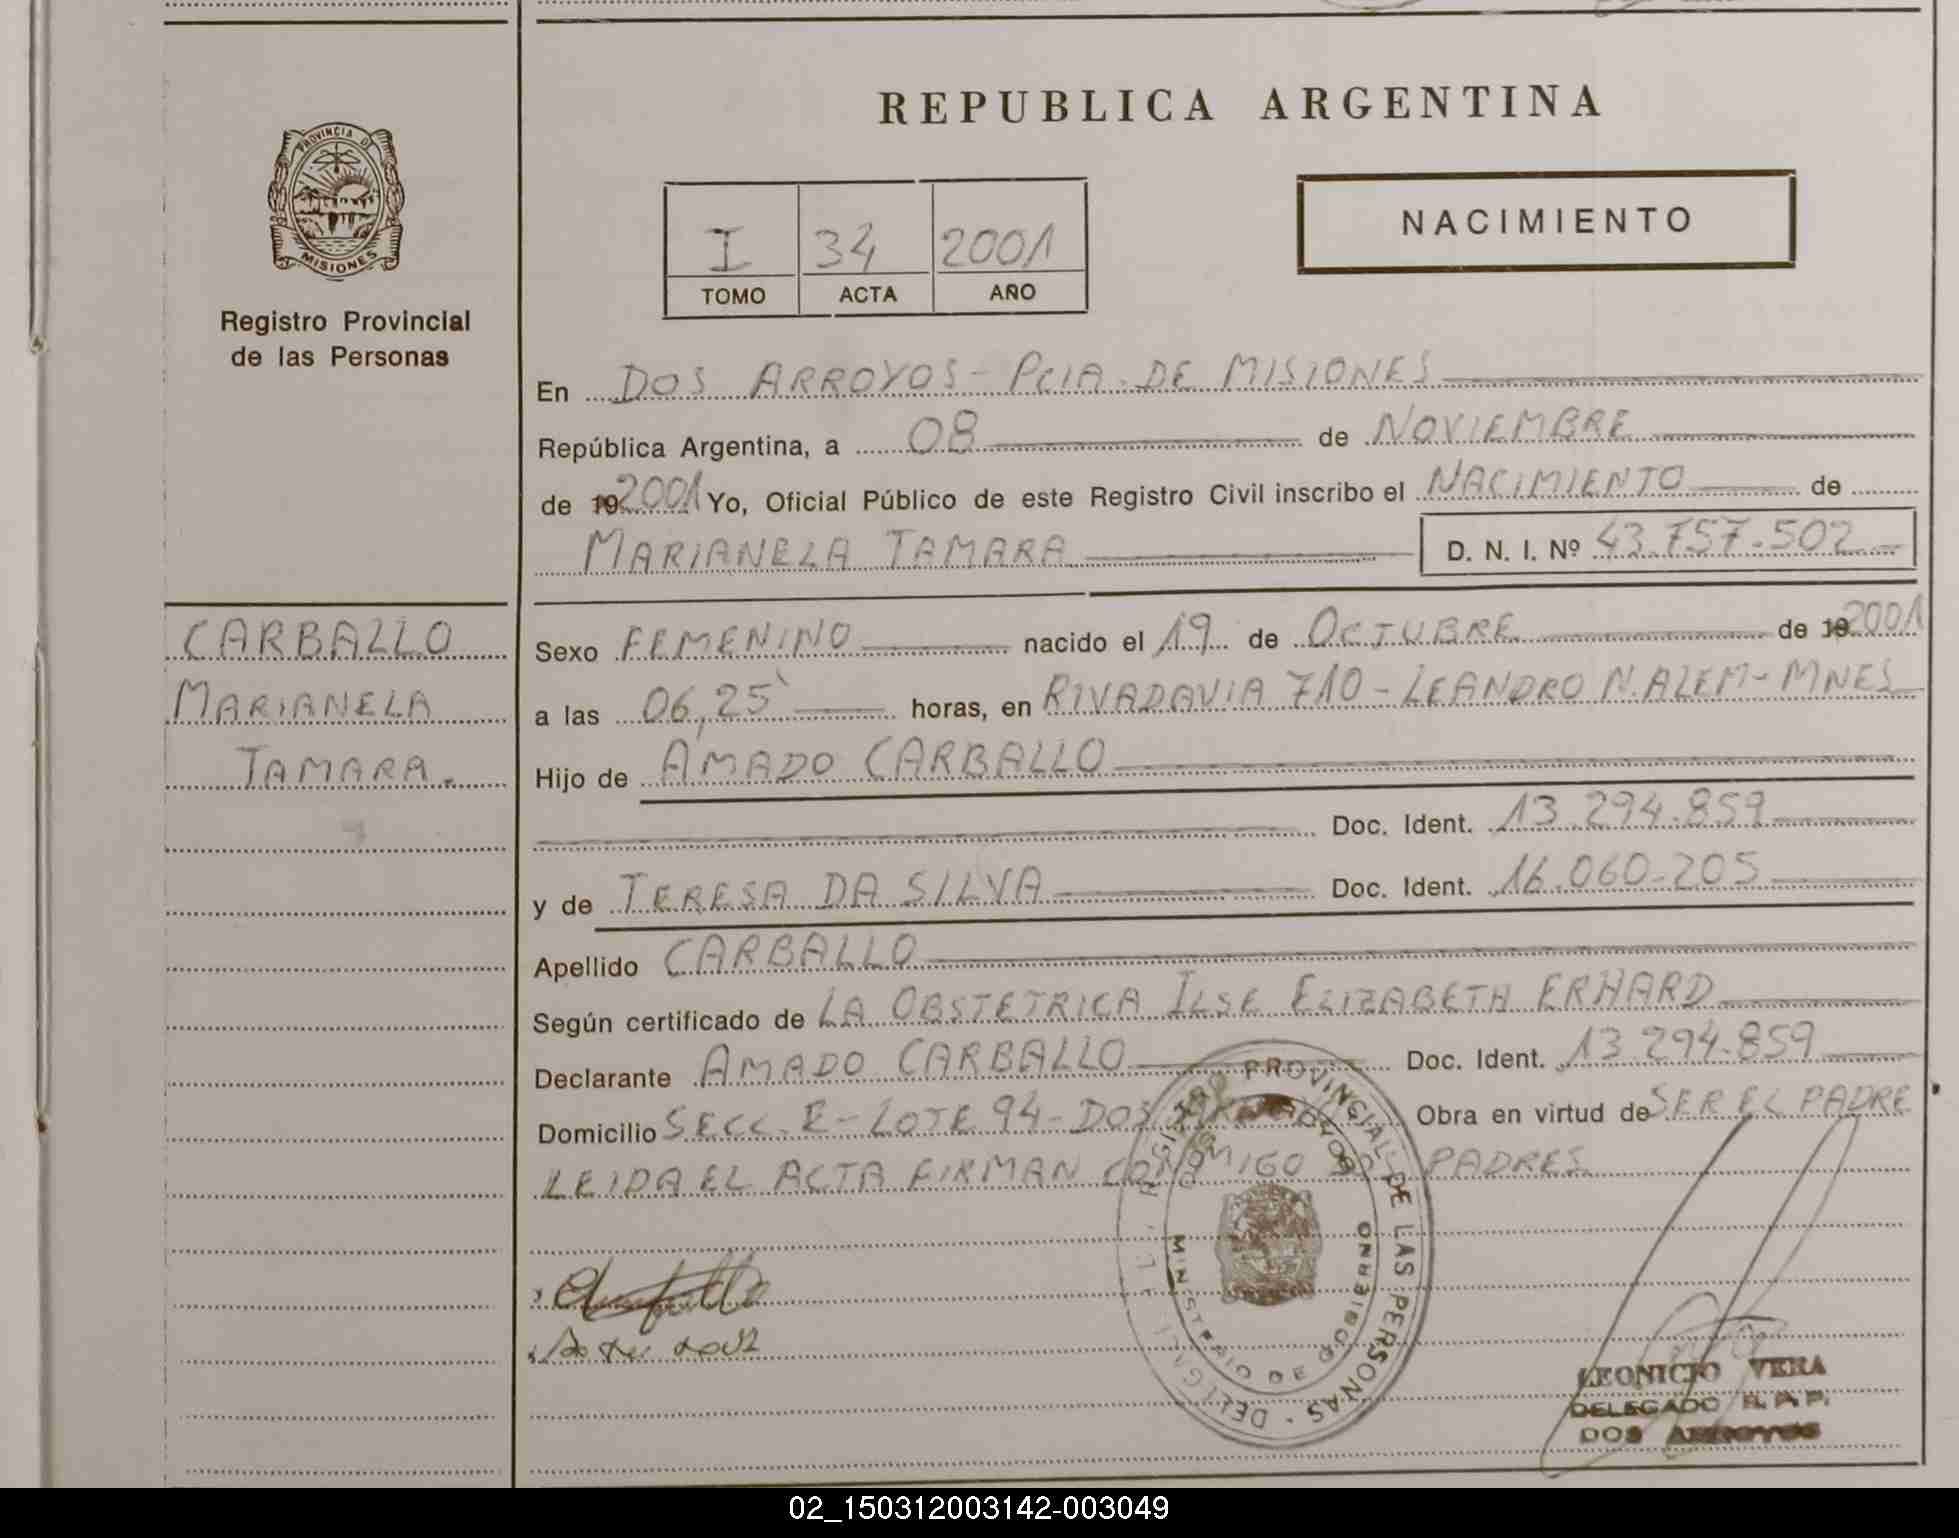 REPUBLICA ARGENTINA
PROVINCIA DE
MISIONES
Registro Provincial
de las Personas
I 34 2001
TOMO ACTA AÑO
NACIMIENTO
En DOS ARROYOS - PCIA. DE MISIONES
República Argentina, a 08 de NOVIEMBRE
de 19 2001 Yo, Oficial Público de este Registro Civil inscribo el NACIMIENTO de
MARIANELA TAMARA D. N. I. Nº 43.757.502
CARBALLO
MARIANELA
TAMARA.
Sexo FEMENINO nacido el 19 de OCTUBRE de 19 2001
a las 06,25 horas, en RIVADAVIA 710 - LEANDRO N. ALEM - MNES
Hijo de AMADO CARBALLO
Doc. Ident. 13.294.859
y de TERESA DA SILVA Doc. Ident. 16.060.205
Apellido CARBALLO
Según certificado de LA OBSTETRICA ILSE ELIZABETH ERHARD
Declarante AMADO CARBALLO Doc. Ident. 13.294.859
Domicilio SECC. E - LOTE 94 - DOS ARROYOS Obra en virtud de SER EL PADRE
LEIDA EL ACTA FIRMAN CONMIGO PADRES
PROVINCIAL DE LAS PERSONAS
MINISTERIO DE GOBIERNO
LEONICIO VERA
DELEGADO R. P. P.
DOS ARROYOS
02_150312003142-003049